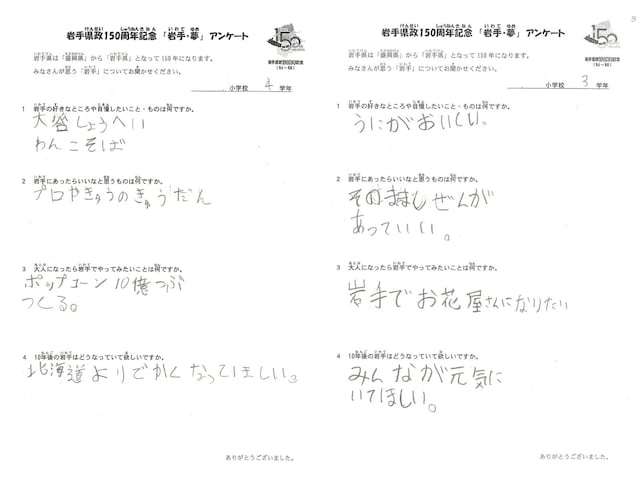 岩手県政150周年記念 「岩手・夢」 アンケート
岩手県は「盛岡県」から「岩手県」となって150年になります。
みなさんが思う「岩手」についてお聞かせください。
小学校 4 学年
1 岩手の好きなところや自慢したいこと・ものは何ですか。
大谷しょうへい
わんこそば
2 岩手にあったらいいなと思うものは何ですか。
プロやきゅうのきゅうだん
3 大人になったら岩手でやってみたいことは何ですか。
ポップコーン10億つぶ
つくる。
4 10年後の岩手はどうなっていて欲しいですか。
北海道よりでかくなってほしい。
ありがとうございました。
岩手県政150周年記念 「岩手・夢」 アンケート
岩手県は「盛岡県」から「岩手県」となって150年になります。
みなさんが思う「岩手」についてお聞かせください。
小学校 3 学年
1 岩手の好きなところや自慢したいこと・ものは何ですか。
うにがおいしい。
2 岩手にあったらいいなと思うものは何ですか。
そのまましぜんが
あっていい。
3 大人になったら岩手でやってみたいことは何ですか。
岩手でお花屋さんになりたい
4 10年後の岩手はどうなっていて欲しいですか。
みんなが元気に
いてほしい。
ありがとうございました。